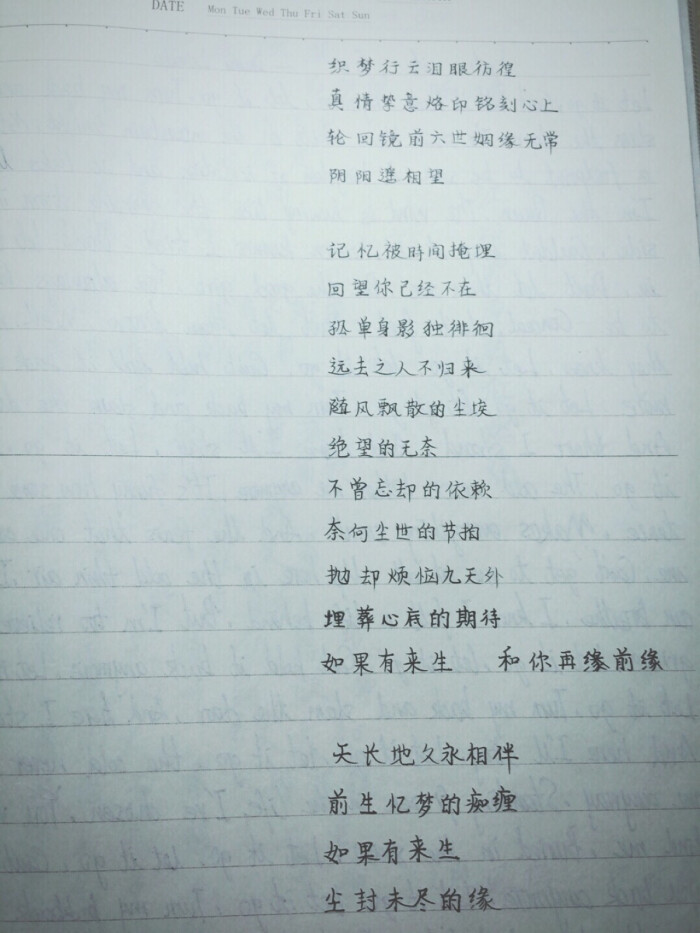 DATE
Mon Tue Wed Thu Fri Sat Sun
织梦行云泪眼彷徨
真情挚意烙印铭刻心上
轮回镜前六世姻缘无常
阴阳遥相望
记忆被时间掩埋
回望你已经不在
孤单身影独徘徊
远去之人不归来
随风飘散的尘埃
绝望的无奈
不曾忘却的依赖
奈何尘世的节拍
抛却烦恼九天外
埋葬心底的期待
如果有来生 和你再缘前缘
天长地久永相伴
前生忆梦的痴缠
如果有来生
尘封未尽的缘